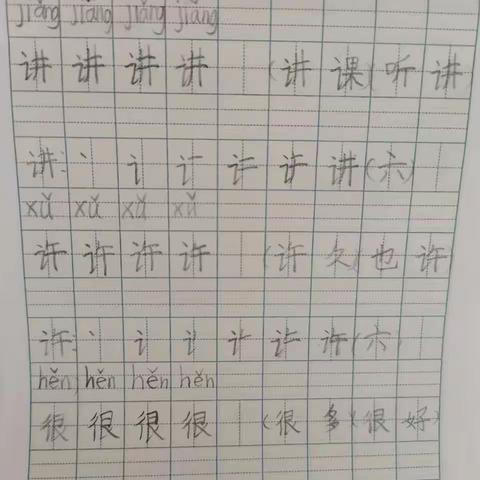 jiǎng jiǎng jiǎng jiǎng
讲 讲 讲 讲 (讲 课)(听 讲)
讲: 丶 讠 讲 (六)
xǔ xǔ xǔ xǔ
许 许 许 许 (许 久)(也 许)
许: 丶 讠 许 (六)
hěn hěn hěn hěn
很 很 很 很 (很 多)(很 好)